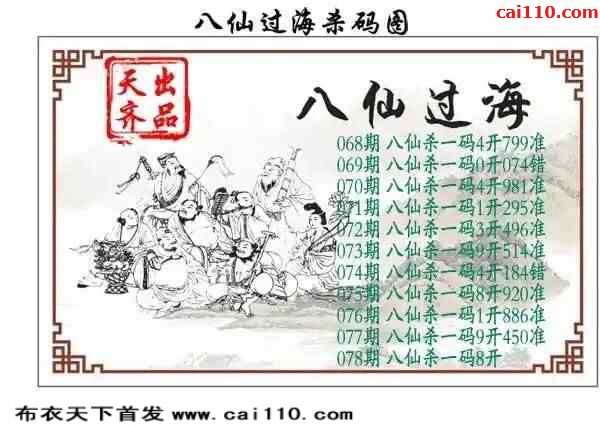 八仙过海杀码图
cai110.com
天齐
出品
八仙过海
068期 八仙杀一码4开799准
069期 八仙杀一码0开074错
070期 八仙杀一码4开981准
071期 八仙杀一码1开295准
072期 八仙杀一码3开496准
073期 八仙杀一码9开514准
074期 八仙杀一码4开184错
075期 八仙杀一码8开920准
076期 八仙杀一码1开886准
077期 八仙杀一码9开450准
078期 八仙杀一码8开
布衣天下首发 www.cai110.com